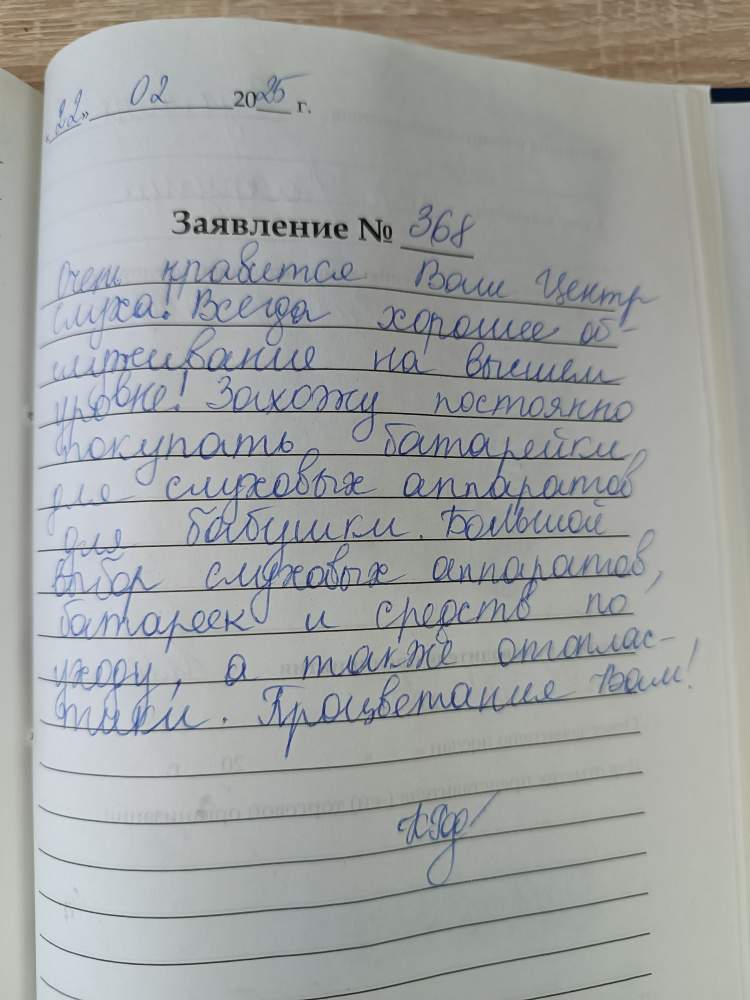 «22» 02 2025 г.
Заявление № 368
Очень нравится Ваш Центр
слуха! Всегда хорошее об-
служивание на высшем
уровне! Захожу постоянно
покупать батарейки
для слуховых аппаратов
для бабушки. Большой
выбор слуховых аппаратов,
батареек и средств по
уходу, а также отоплас-
тики. Процветания Вам!